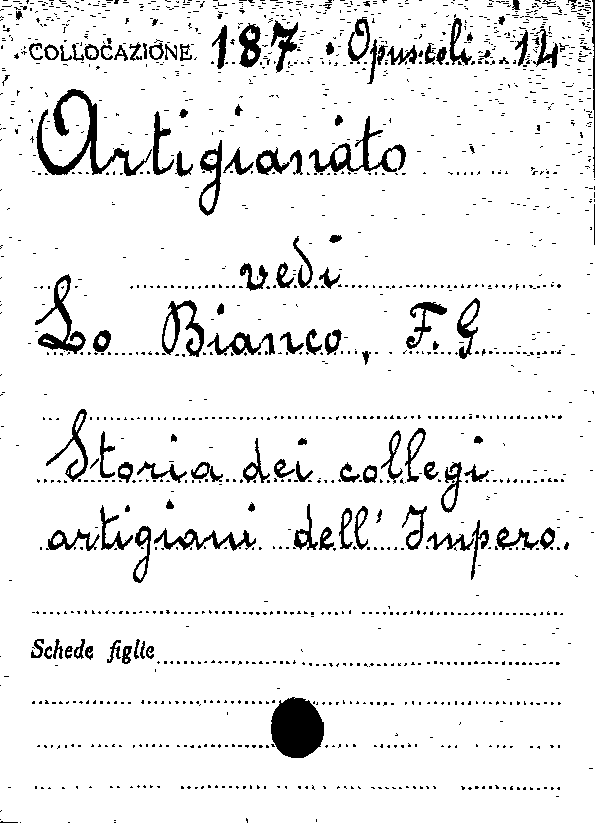 COLLOCAZIONE 187 · Opuscoli · 14
Artigianato
vedi
Lo Bianco, F. G.
Storia dei collegi
artigiani dell' Impero.
Schede figlie